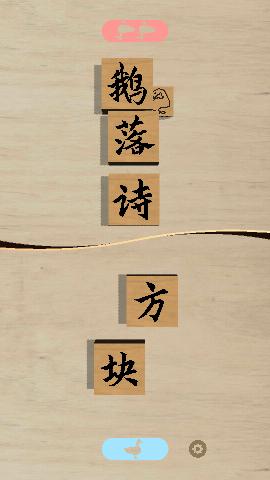 鹅
落
诗
方
块